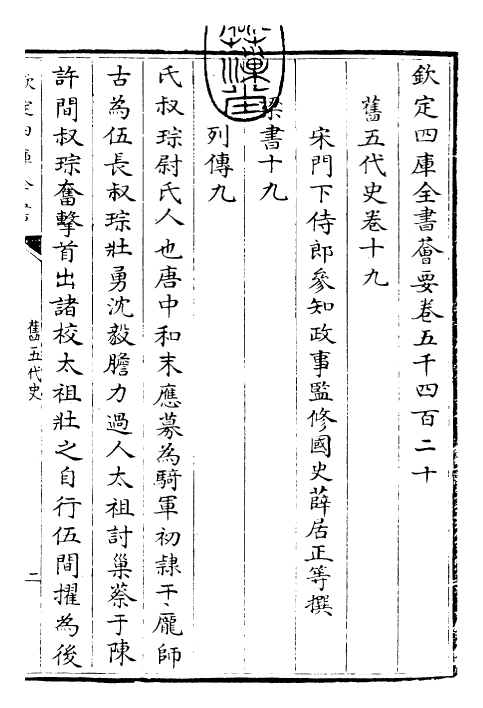 欽定四庫全書薈要卷五千四百二十
舊五代史卷十九
宋門下侍郎參知政事監修國史薛居正等撰
梁書十九
列傳九
氏叔琮尉氏人也唐中和末應募為騎軍初隸于龐師
古為伍長叔琮壯勇沈毅膽力過人太祖討巢蔡于陳
許間叔琮奮擊首出諸校太祖壯之自行伍間擢為後
舊五代史
二